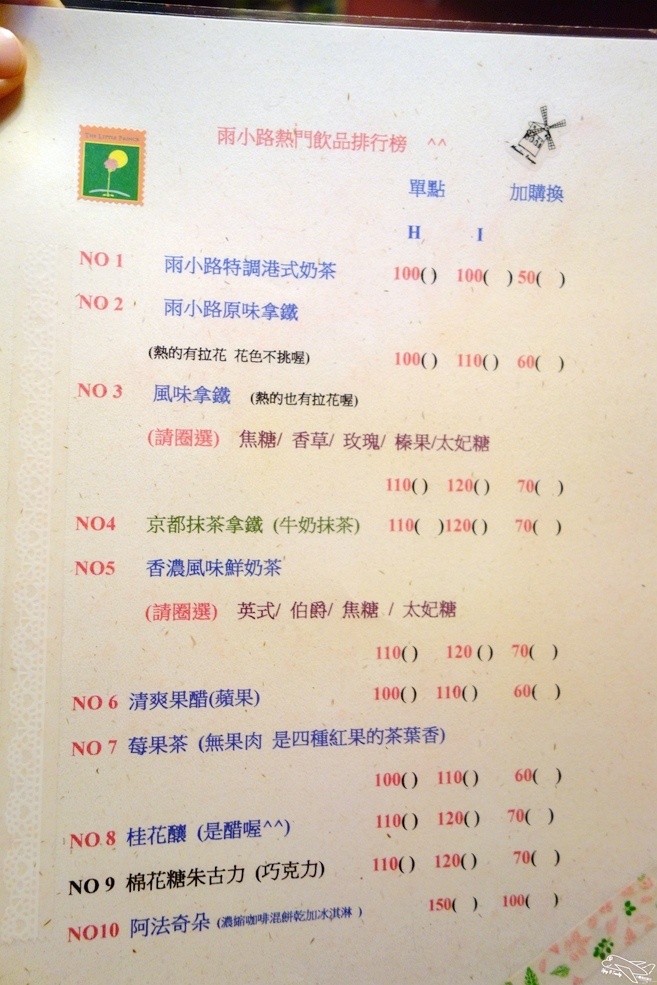 雨小路熱門飲品排行榜 ^^
單點 加購換
H I
NO 1 雨小路特調港式奶茶 100( ) 100( ) 50( )
NO 2 雨小路原味拿鐵
(熱的有拉花 花色不挑喔) 100( ) 110( ) 60( )
NO 3 風味拿鐵 (熱的也有拉花喔)
(請圈選) 焦糖/ 香草/ 玫瑰/ 榛果/太妃糖
110( ) 120( ) 70( )
NO4 京都抹茶拿鐵 (牛奶抹茶) 110( )120( ) 70( )
NO5 香濃風味鮮奶茶
(請圈選) 英式/ 伯爵/ 焦糖 / 太妃糖
110( ) 120 ( ) 70( )
NO 6 清爽果醋(蘋果) 100( ) 110( ) 60( )
NO 7 莓果茶 (無果肉 是四種紅果的茶葉香)
100( ) 110( ) 60( )
NO 8 桂花釀 (是醋喔^^) 110( ) 120( ) 70( )
NO 9 棉花糖朱古力 (巧克力) 110( ) 120( ) 70( )
NO10 阿法奇朵 (濃縮咖啡混餅乾加冰淇淋 ) 150( ) 100( )